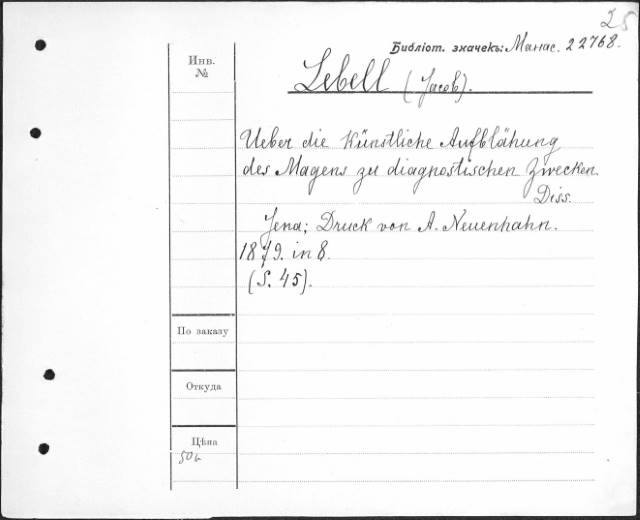 25
Библіот. значекъ: Манас. 22768.
Инв.
№
Lebell (Jacob).
Ueber die künstliche Aufblähung
des Magens zu diagnostischen Zwecken.
Diss.
Jena; Druck von A. Neuenhahn.
1879. in 8.
(S. 45).
По заказу
Откуда
Цѣна